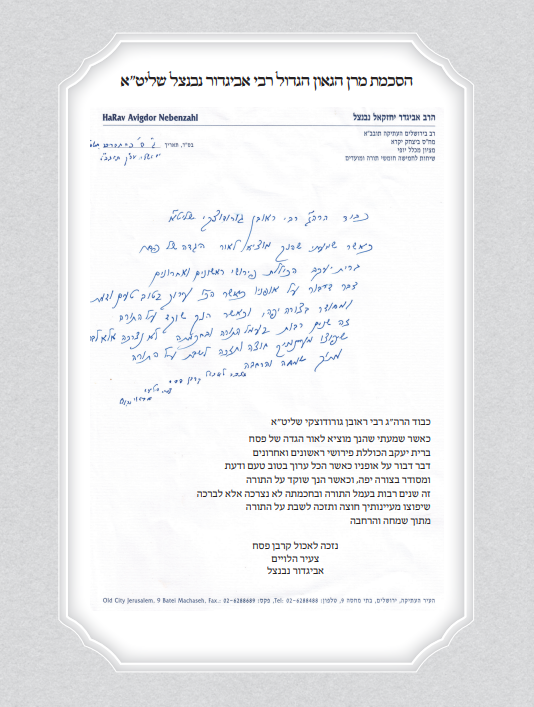 הסכמת מרן הגאון הגדול רבי אביגדור נבנצל שליט"א
HaRav Avigdor Nebenzahl
הרב אביגדר יחזקאל נבנצל
רב בירושלים העתיקה תובב"א
מח"ס ביצחק יקרא
מציון מכלל יופי
שיחות לחמישה חומשי תורה ומועדים
בס"ד, תאריך
ירושלים עיה"ק תובב"א
כבוד הרה"ג רבי ראובן גורודוצקי שליט"א
כאשר שמעתי שהנך מוציא לאור הגדה של פסח
ברית יעקב הכוללת פירושי ראשונים ואחרונים
דבר דבור על אופניו כאשר הכל ערוך בטוב טעם ודעת
ומסודר בצורה יפה, וכאשר הנך שוקד על התורה
זה שנים רבות בעמל התורה ובחכמתה לא נצרכה אלא לברכה
שיפוצו מעיינותיך חוצה ותזכה לשבת על התורה
מתוך שמחה והרחבה
נזכה לאכול קרבן פסח
צעיר הלויים
כבוד הרה"ג רבי ראובן גורודוצקי שליט"א
כאשר שמעתי שהנך מוציא לאור הגדה של פסח
ברית יעקב הכוללת פירושי ראשונים ואחרונים
דבר דבור על אופניו כאשר הכל ערוך בטוב טעם ודעת
ומסודר בצורה יפה, וכאשר הנך שוקד על התורה
זה שנים רבות בעמל התורה ובחכמתה לא נצרכה אלא לברכה
שיפוצו מעיינותיך חוצה ותזכה לשבת על התורה
מתוך שמחה והרחבה
נזכה לאכול קרבן פסח
צעיר הלויים
אביגדור נבנצל
העיר העתיקה, ירושלים, בתי מחסה 9, טלפון: Tel: 02-6288488, פקס: Old City Jerusalem, 9 Batei Machaseh, Fax.: 02-6288689